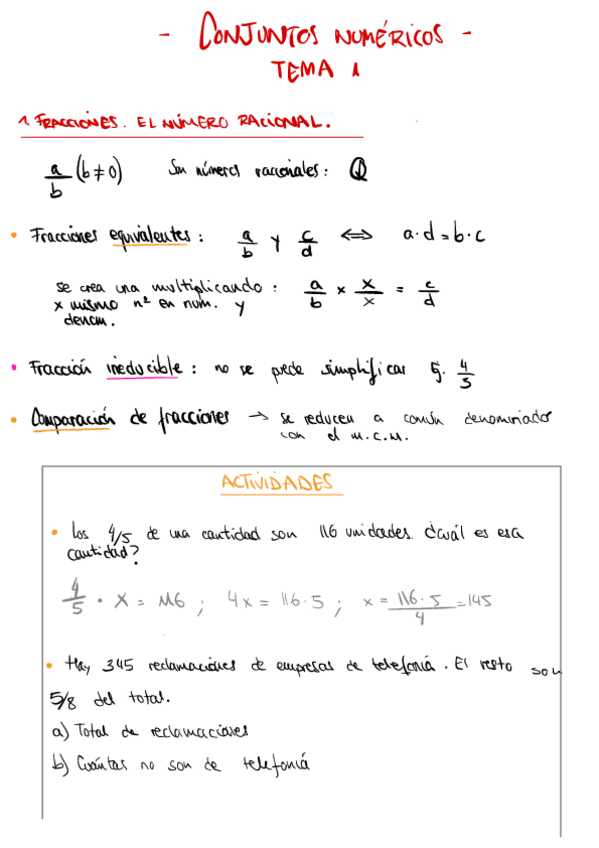 - CONJUNTOS NUMÉRICOS -
TEMA 1
1. FRACCIONES. EL NÚMERO RACIONAL.
a/b (b≠0) Son números racionales: ℚ
• Fracciones equivalentes: a/b y c/d ⟺ a·d=b·c
se crea una multiplicando: a/b × x/x = c/d
x mismo nº en num. y
denom.
• Fracción irreducible: no se puede simplificar Ej. 4/5
• Comparación de fracciones → se reducen a común denominador
con el m.c.m.
ACTIVIDADES
• Los 4/5 de una cantidad son 116 unidades. ¿Cuál es esa
cantidad?
4/5 · X = 116 ; 4x = 116·5 ; x = 116·5/4 = 145
• Hay 345 reclamaciones de empresas de telefonía. El resto son
5/8 del total.
a) Total de reclamaciones
b) Cuántas no son de telefonía